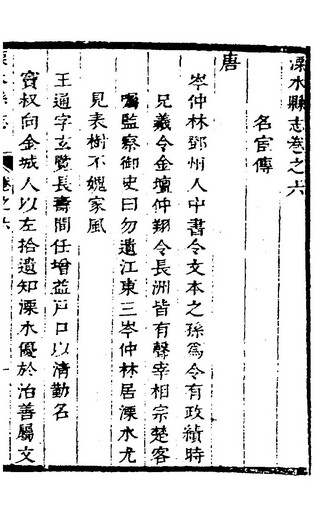 溧水縣志卷之六
名宦傳
唐
岑仲林鄧州人中書令文本之孫爲令有政績時
兄羲令金壇仲翔令長洲皆有聲宰相宗楚客
囑監察御史曰勿遺江東三岑仲林居溧水尤
見表樹不媿家風
王通字玄覽長壽間任增益戶口以清勤名
竇叔向金城人以左拾遺知溧水優於治善屬文